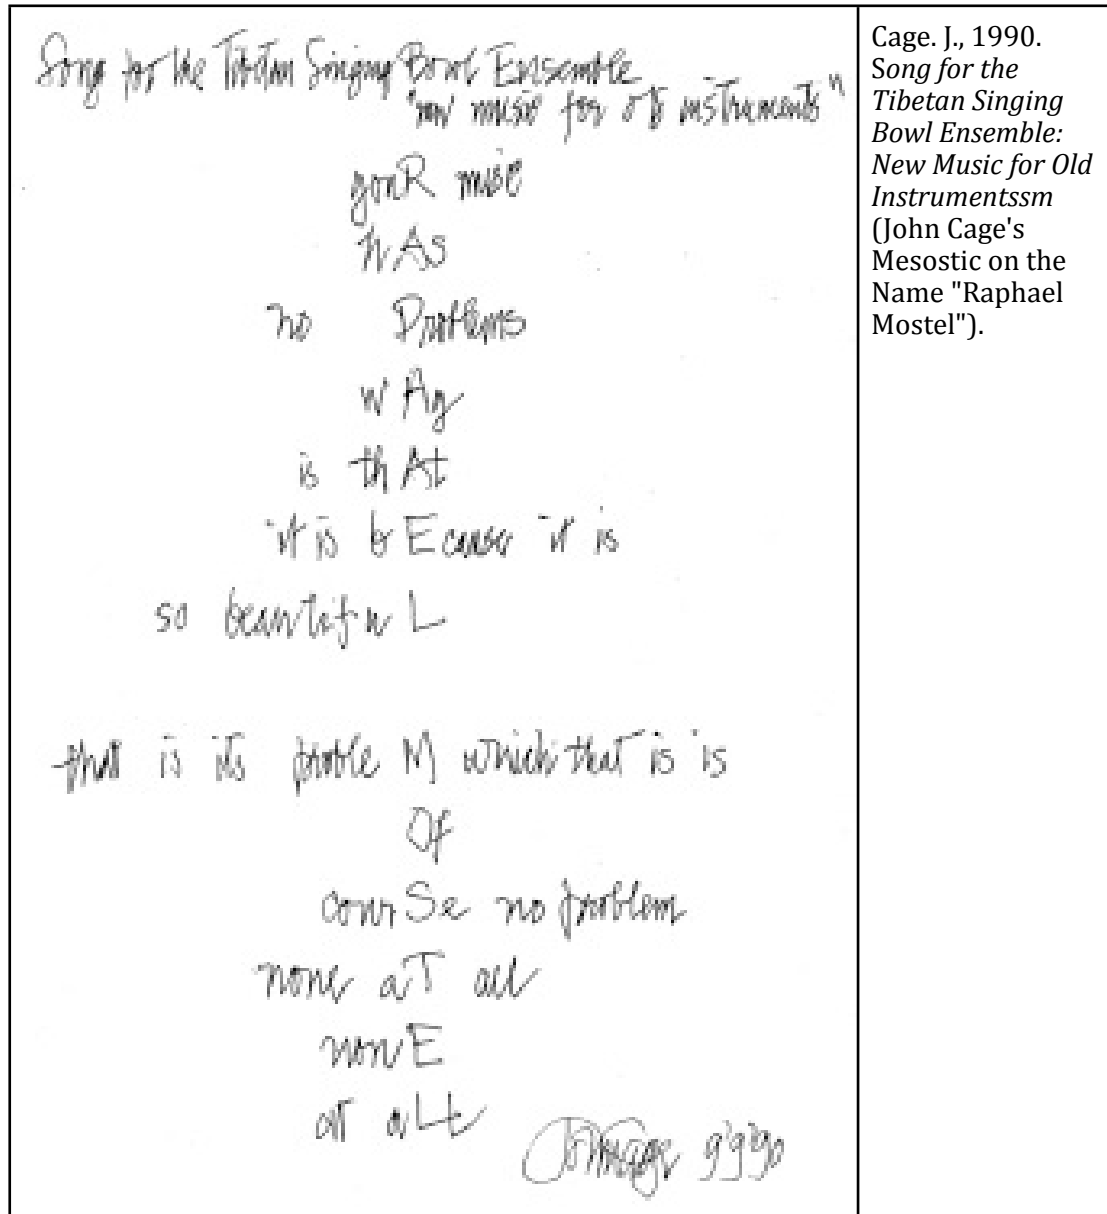 Song for the Tibetan Singing Bowl Ensemble
"new music for old instruments"
youR music
hAs
no Problems
wAy
is thAt
it is bEcause it is
so beautifuL
that is its probleM which that is is
Of
courSe no problem
none aT all
nonE
at aLl
John Cage 9'9'90
Cage. J., 1990.
Song for the
Tibetan Singing
Bowl Ensemble:
New Music for Old
Instrumentssm
(John Cage's
Mesostic on the
Name "Raphael
Mostel").